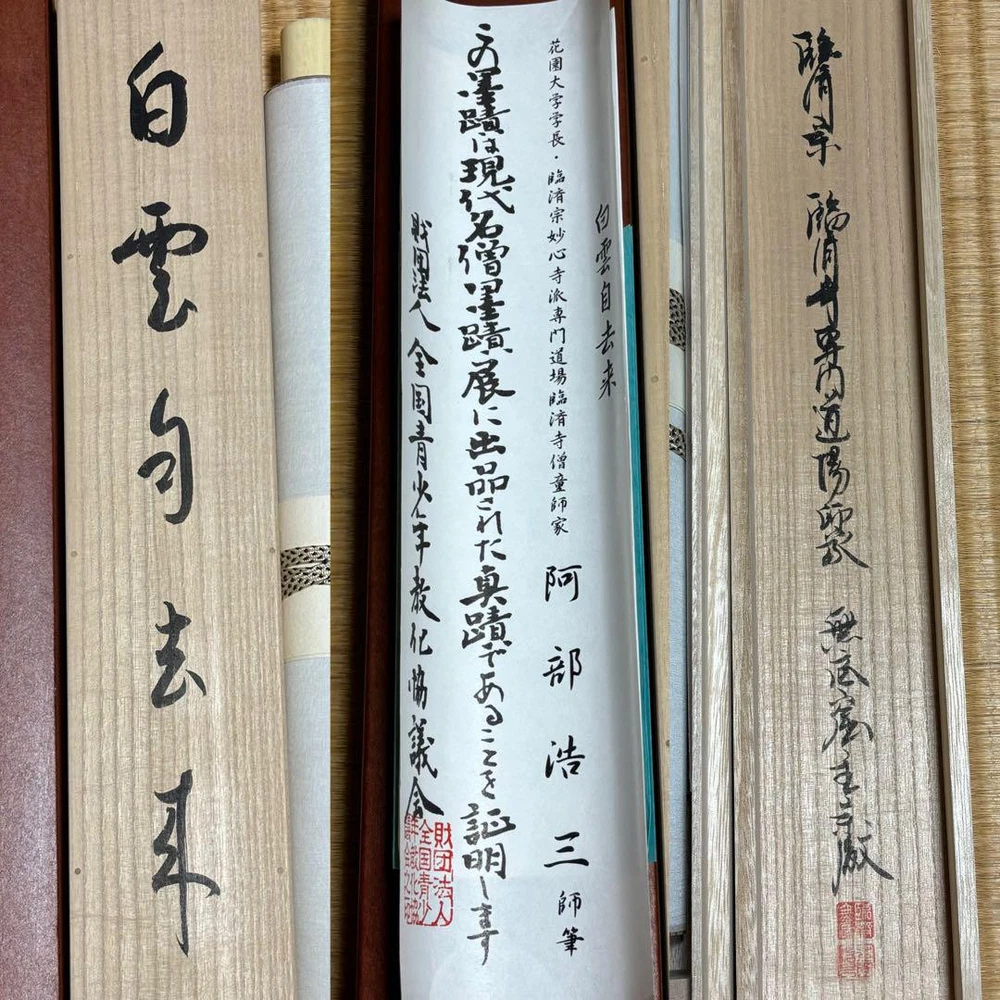 白雲自去来
白雲自去来
花園大学学長・臨済宗妙心寺派専門道場臨済寺僧童師家
阿部浩三師筆
この墨蹟は現代名僧墨蹟展に出品された真蹟であることを証明します
財団法人全国青少年教化協議会
財団法人
全国青少
年教化協
議会之印
臨済宗 臨済寺専門道場 無底窟主